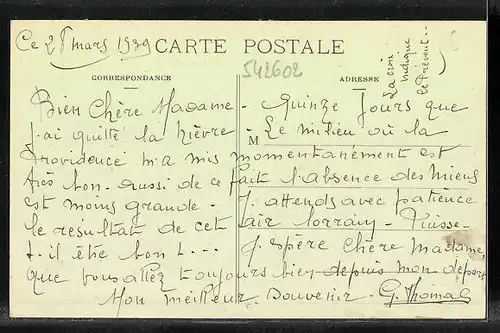 Ce 28 mars 1939 CARTE POSTALE
542602
CORRESPONDANCE
ADRESSE
La croix
indique
le Prevent..
Bien Chère Madame - Quinze Jours que
j'ai quitté la Nièvre
M Le milieu où la
Providence m'a mis momentanément est
très bon. aussi de ce fait l'absence des miens
est moins grande. J'attends avec patience
le résultat de cet air lorrain - Puisse.
t. il être bon !... J'espère Chère Madame,
que vous allez toujours bien depuis mon départ
Mon meilleur souvenir - G. Thomas